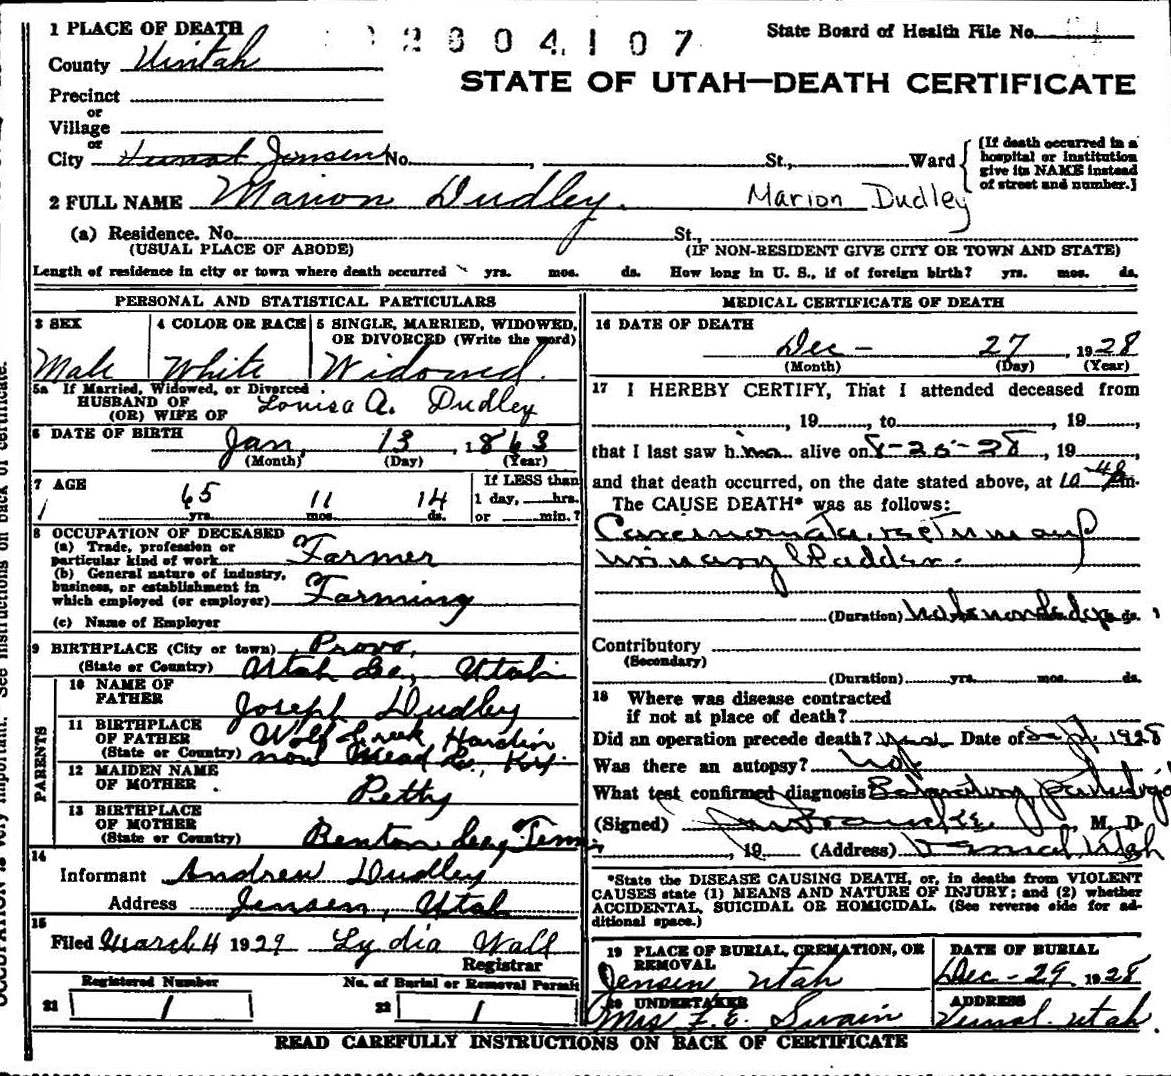 1 PLACE OF DEATH
2804107
State Board of Health File No.
County Uintah
STATE OF UTAH—DEATH CERTIFICATE
Precinct
or
Village
or
City Vernal Jensen No. , St., Ward
[If death occurred in a hospital or institution give its NAME instead of street and number.]
2 FULL NAME Marion Dudley. Marion Dudley
(a) Residence. No. St.,
(USUAL PLACE OF ABODE) (IF NON-RESIDENT GIVE CITY OR TOWN AND STATE)
Length of residence in city or town where death occurred yrs. mos. ds. How long in U. S., if of foreign birth? yrs. mos. ds.
PERSONAL AND STATISTICAL PARTICULARS
3 SEX 4 COLOR OR RACE 5 SINGLE, MARRIED, WIDOWED,
OR DIVORCED (Write the word)
Male White Widowed.
5a If Married, Widowed, or Divorced
HUSBAND OF
(OR) WIFE OF Louisa A. Dudley
6 DATE OF BIRTH Jan, 13, 1863
(Month) (Day) (Year)
7 AGE 65 yrs. 11 mos. 14 ds.
If LESS than
1 day, hrs.
or min.?
8 OCCUPATION OF DECEASED
(a) Trade, profession or
particular kind of work Farmer
(b) General nature of industry,
business, or establishment in
which employed (or employer) Farming
(c) Name of Employer
9 BIRTHPLACE (City or town) Provo,
(State or Country) Utah Co., Utah
PARENTS
10 NAME OF
FATHER Joseph Dudley
11 BIRTHPLACE
OF FATHER Wolf Creek Hardin
(State or Country) now Mead Co., Ky.
12 MAIDEN NAME
OF MOTHER Petty
13 BIRTHPLACE
OF MOTHER
(State or Country) Benton Co., Tenn
14
Informant Andrew Dudley
Address Jensen, Utah
15
Filed March 4 1929 Lydia Wall
Registrar
Registered Number No. of Burial or Removal Permit
21 1 22 1
MEDICAL CERTIFICATE OF DEATH
16 DATE OF DEATH
Dec - 27, 1928
(Month) (Day) (Year)
17 I HEREBY CERTIFY, That I attended deceased from
, 19 , to , 19 ,
that I last saw him alive on 8-25-28, 19 ,
and that death occurred, on the date stated above, at 10 m.
The CAUSE DEATH* was as follows:
Carcinomata
urinary bladder.
(Duration) ds.
Contributory
(Secondary)
(Duration) yrs. mos. ds.
18 Where was disease contracted
if not at place of death?
Did an operation precede death? Date of 1928
Was there an autopsy? no
What test confirmed diagnosis
(Signed) , M. D.
, 19 (Address) Vernal, Utah
*State the DISEASE CAUSING DEATH, or, in deaths from VIOLENT
CAUSES state (1) MEANS AND NATURE OF INJURY; and (2) whether
ACCIDENTAL, SUICIDAL OR HOMICIDAL. (See reverse side for ad-
ditional space.)
19 PLACE OF BURIAL, CREMATION, OR
REMOVAL
Jensen Utah
DATE OF BURIAL
Dec - 29 1928
20 UNDERTAKER
Mrs F. E. Swain
ADDRESS
Vernal. Utah.
READ CAREFULLY INSTRUCTIONS ON BACK OF CERTIFICATE
OCCUPATION is very important. See instructions on back of certificate.